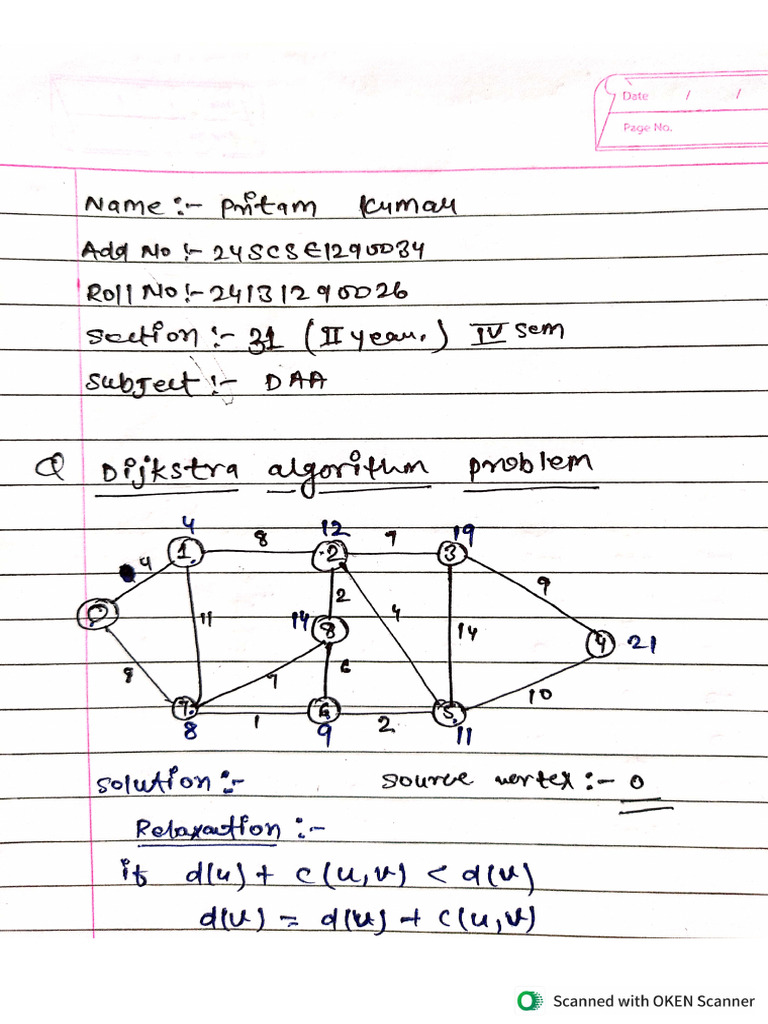 Date / /
Page No.
Name :- Pritam Kumar
Add No :- 24SCSE1290034
Roll No :- 24131290026
Section :- 31 (II year.) IV sem
Subject :- DAA
Q Dijkstra algorithm problem
4 12 19
4 1 8 2 7 3 9
0 11 14 8 2 4 14 4 21
8 7 6 10
7 1 6 2 5
8 9 11
Solution :- Source vertex :- 0
Relaxation :-
if d(u) + c(u,v) < d(v)
d(v) = d(u) + c(u,v)
Scanned with OKEN Scanner